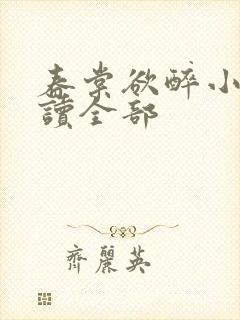 春棠欲醉小
讀全部
齊麗英